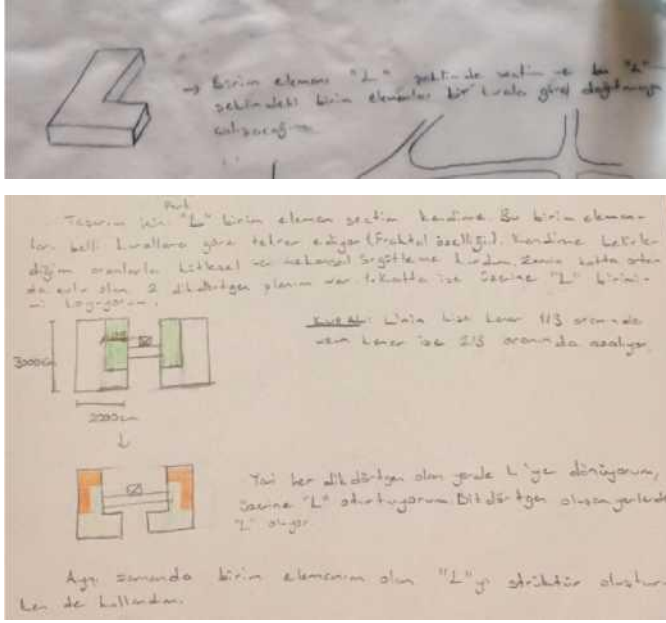 → Birim elemanı "L" şeklinde seçtim ve bu "L"
şeklindeki birim elemanları bir kurala göre dağıtmaya
çalışacağım
Part
Tasarım için "L" birim eleman seçtim kendime. Bu birim eleman-
ları belli kurallara göre tekrar ediyor (Fraktal özelliği). Kendime belirle-
diğim oranlarla kitlesel ve mekansal örgütleme kurdum. Zemin katta orta-
da avlu olan 2 dikdörtgen planım var. 1. katta ise üzerine "L" birimi-
mi koyuyorum.
KURAL: L'nin kısa kenar 1/3 oranında
uzun kenar ise 2/3 oranında azalıyor.
3000cm
2200cm
↓
Yani her dikdörtgen olan yerde L'ye dönüyorum,
üzerine "L" oturtuyorum. Dikdörtgen oluşan yerlerde
"L" oluyor.
Aynı zamanda birim elemanım olan "L"yi strüktür oluştur-
ken de kullandım.